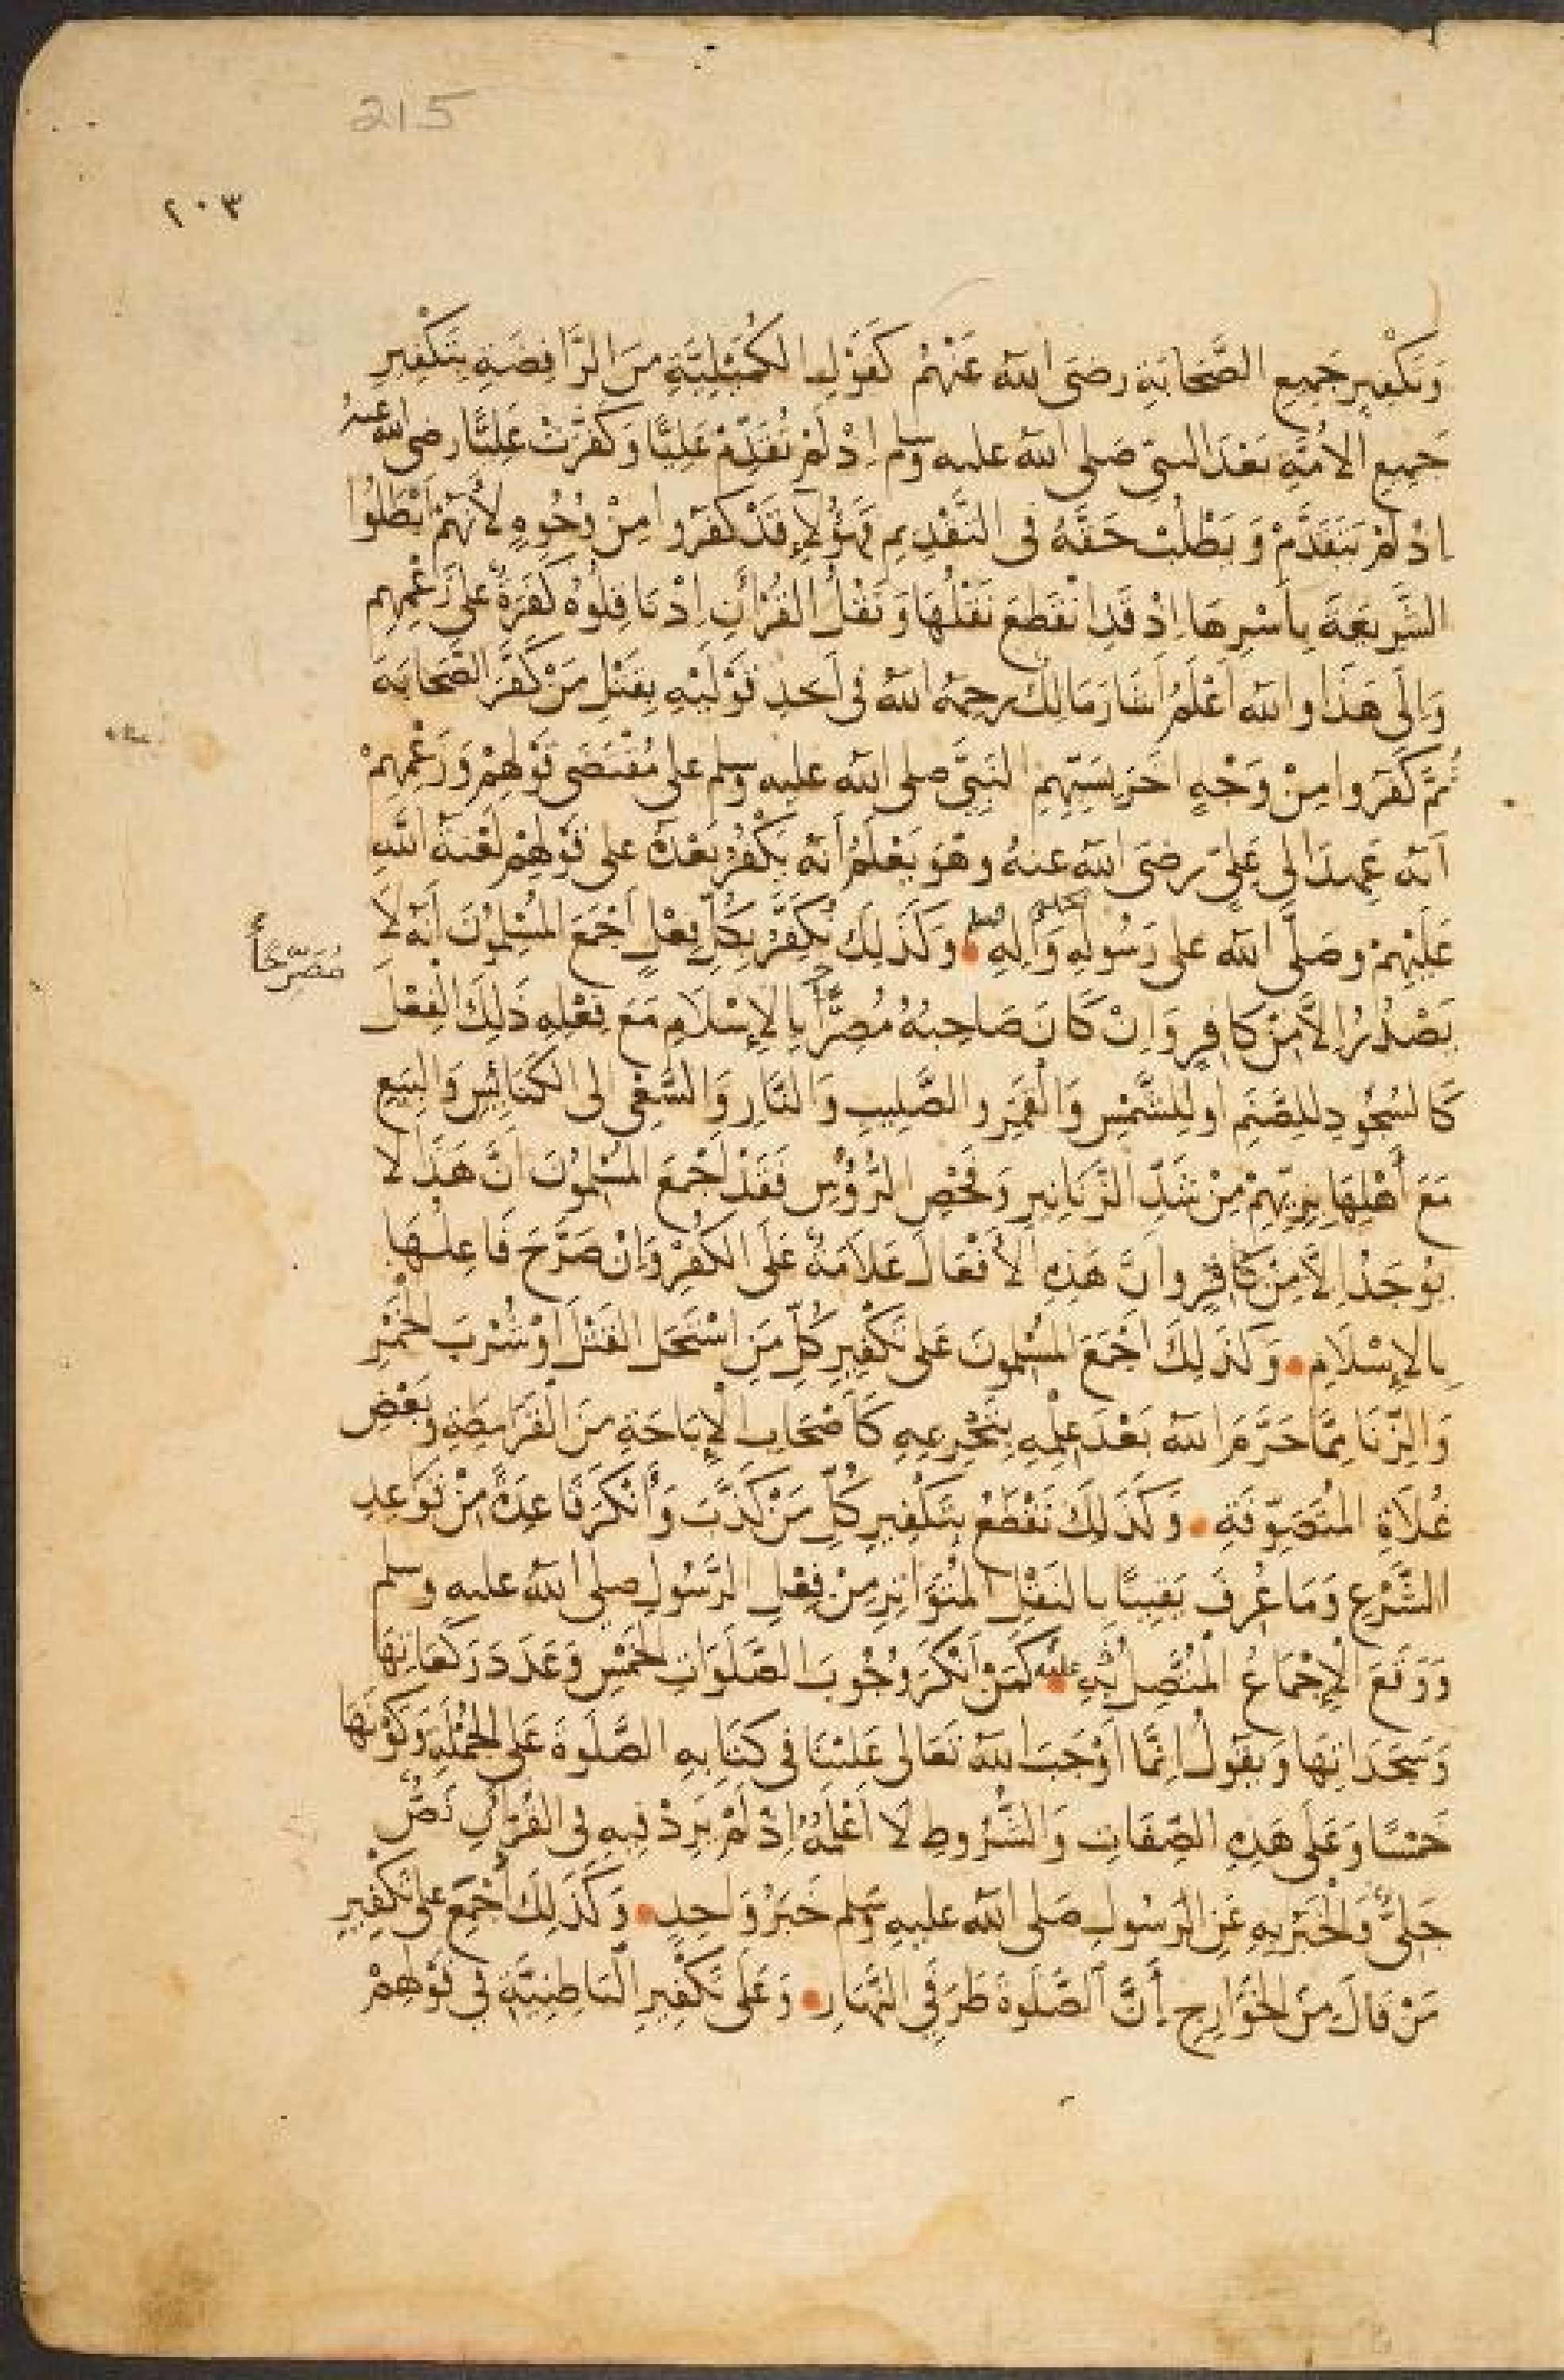 215
٢٠٣
وَتَكْفِيرِ جَمِيعِ الصَّحَابَةِ رضى الله عَنْهُمْ كَقَوْلِ الكُمَيْلِيَّةِ مِنَ الرَّافِضَةِ بِتَكْفِيرِ
جَمِيعِ الأُمَّةِ بَعْدَ النبىّ صَلى الله عليه وسلم اِذْ لَمْ تُقَدِّمْ عَلِيًّا وَكَفَّرَتْ عَلِيًّا رضى الله عنه
اِذْ لَمْ يَتَقَدَّمْ وَيَطْلُبْ حَقَّهُ فى التَّقْدِيمِ فَهَؤُلَاءِ قَدْ كَفَرُوا مِنْ وُجُوهٍ لأَنَّهُمْ اَبْطَلُوا
الشَّرِيعَةَ بِأَسْرِهَا اِذْ قَدِ انْقَطَعَ نَقْلُهَا وَنَقْلُ القُرْآنِ اِذْ نَاقِلُوهُ كَفَرَةٌ عَلى زَعْمِهِمْ
وَاِلَى هَذَا وَالله اَعْلَمُ اَشَارَ مَالِكٌ رحِمَهُ الله فى اَحَدِ قَوْلَيْهِ بِقَتْلِ مَنْ كَفَّرَ الصَّحَابَةَ
ثُمَّ كَفَرُوا مِنْ وَجْهٍ اخَرَ بِسَبِّهِمِ النَّبِىَّ صلى الله عليه وسلم على مُقْتَضَى قَوْلِهِمْ وَزَعْمِهِمْ
اَنّه عَهِدَ اِلى عَلِىّ رضىَ الله عنهُ وهُوَ يَعْلَمُ اَنّه يَكْفُرُ بَعْدَهُ على قَوْلِهِمْ لَعْنَةُ اللهِ
عَلَيْهِمْ وصَلَّى الله على رَسُولِهِ وَآلِهِ وسلم وَكَذَلِكَ نُكَفِّرُ بِكُلِّ فِعْلٍ اَجْمَعَ المُسْلِمُونَ اَنّه لَا
مُصَرِّحاً
يَصْدُرُ اِلَّا مِنْ كَافِرٍ وَاِنْ كَانَ صَاحِبُهُ مُصَرِّحًا بِالإِسْلَامِ مَعَ فِعْلِهِ ذَلِكَ الْفِعْلَ
كَالسُجُودِ لِلصَّنَمِ اَو لِلشَّمْسِ وَالْقَمَرِ والصَّلِيبِ وَالنَّارِ وَالسَّعْىِ اِلى الكَنَائِسِ وَالبِيَعِ
مَعَ أَهْلِهَا بِزِيِّهِمْ مِنْ شَدِّ الزَّنَانِيرِ وَفَحْصِ الرُّؤُسِ فَقَدْ اَجْمَعَ المُسْلِمُونَ اَنَّ هَذَا لَا
يُوجَدُ اِلَّا مِنْ كَافِرٍ وانَّ هَذِهِ الأَفْعَالَ عَلَامَةٌ عَلَى الكُفْرِ وَاِنْ صَرَّحَ فَاعِلُهَا
بِالإِسْلَامِ وَكَذَلِكَ اَجْمَعَ المُسْلِمُونَ عَلى تَكْفِيرِ كُلِّ مَنِ اسْتَحَلَّ القَتْلَ اَوْ شُرْبَ الخَمْرِ
وَالزِّنَا مِمَّا حَرَّمَ الله بَعْدَ عِلْمِهِ بِتَحْرِيمِهِ كَأَصْحَابِ الْإِبَاحَةِ مِنَ الْقَرَامِطَةِ وَبَعْضِ
غُلَاةِ المُتَصَوِّفَةِ وَكَذَلِكَ نَقْطَعُ بِتَكْفِيرِ كُلِّ مَنْ كَذَّبَ وَأَنْكَرَ قَاعِدَةً مِنْ قَوَاعِدِ
الشَّرْعِ وَمَا عُرِفَ يَقِينًا بِالنَقْلِ المُتَوَاتِرِ مِنْ فِعْلِ الرَّسُولِ صلى الله عليه وسلم
وَوَقَعَ الْإِجْمَاعُ الْمُتَّصِلُ عليه كَمَنْ اَنْكَرَ وُجُوبَ الصَّلَوَاتِ الخَمْسِ وَعَدَدَ رَكَعَاتِهَا
وَسَجَدَاتِهَا وَيَقُولُ اِنَّمَا اَوْجَبَ الله تَعَالى عَلَيْنَا فى كِتَابِهِ الصَّلَوةَ عَلى الجُمْلَةِ وَكَوْنُهَا
خَمْسًا وَعَلَى هَذِهِ الصِّفَاتِ وَالشُّرُوطِ لَا اَعْلَمُهُ اِذْ لَمْ يَرِدْ فِيهِ فى القُرْآنِ نَصٌّ
جَلِىٌّ وَالْخَبَرُ بِهِ عَنِ الرَسُولِ صَلى الله عليهِ وَسَلم خَبَرُ وَاحِدٍ وَكَذَلِكَ أُجْمِعَ عَلى تَكْفِيرِ
مَنْ قَالَ مِنَ الخَوَارِجِ إنَّ الصَّلَوةَ طَرَفَىِ النَّهَارِ وَعَلَى تَكْفِيرِ الْبَاطِنِيَّةِ فِي قَوْلِهِمْ